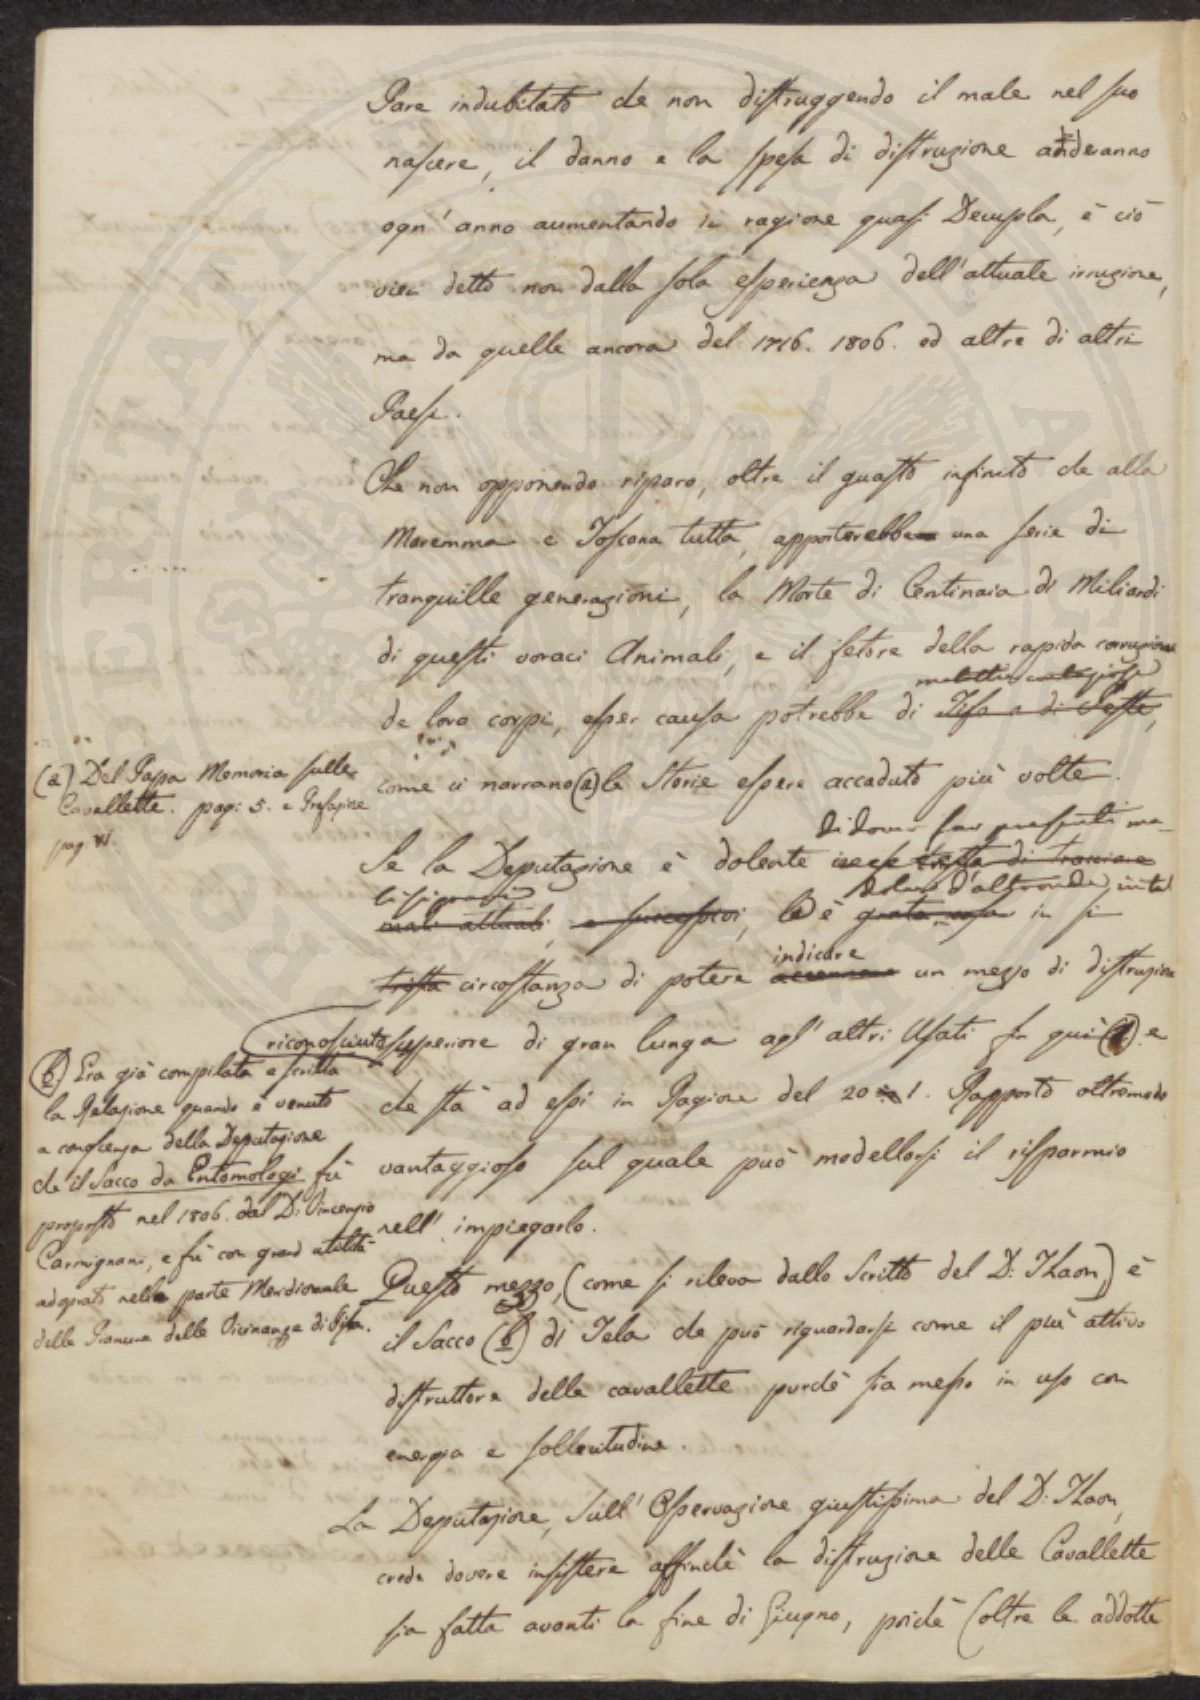 Pare indubitato che non distruggendo il male nel suo
nascere, il danno e la spesa di distruzione anderanno
ogn' anno aumentando in ragione quasi Decupla, e ciò
vien detto non dalla sola esperienza dell'attuale irruzione,
ma da quelle ancora del 1716. 1806. ed altre di altri
Paesi.
Che non opponendo riparo, oltre il guasto infinito che alla
Maremma e Toscana tutta, apporterebbe una serie di
tranquille generazioni, la Morte di Centinaia di Miliardi
di questi voraci Animali, e il fetore della rapida corruzione
malattie contagiose
de loro corpi, esser causa potrebbe di Tifo e di Peste,
come ci narrano (a) le Storie essere accaduto più volte.
(a) Del Papa Memoria sulle
Cavallette. pag: 5. e Prefazione
pag. VI.
di dover far presenti ma-
Se la Deputazione è dolente trista di tracciare
li sì gravi
d'altronde in tal
mali attuali, e successivi, le è grata cosa in sì
indicare
trista circostanza di potere accennare un mezzo di distruzione
riconosciuto superiore di gran lunga agl' altri Usati fin quì e
che stà ad essi in Ragione del 20 1. Rapporto oltremodo
vantaggioso sul quale può modellarsi il risparmio
nell' impiegarlo.
(b) Era già compilata e scritta
la Relazione quando è venuto
a conoscenza della Deputazione
che il Sacco da Entomologi fù
proposto nel 1806. dal D. Vincenzio
Carmignani, e fù con grand utilità
adoprato nella parte Meridionale
delle Pianure delle Vicinanze di Pisa.
Questo mezzo, (come si rileva dallo Scritto del D: Thaon,) è
il Sacco (b) di Tela che può riguardarsi come il più attivo
distruttore delle cavallette purchè sia messo in uso con
energia e sollecitudine.
La Deputazione, sull' Osservazione giustissima del D: Thaon,
crede dovere insistere affinchè la distruzione delle Cavallette
sia fatta avanti la fine di Giugno, poichè (oltre le addotte